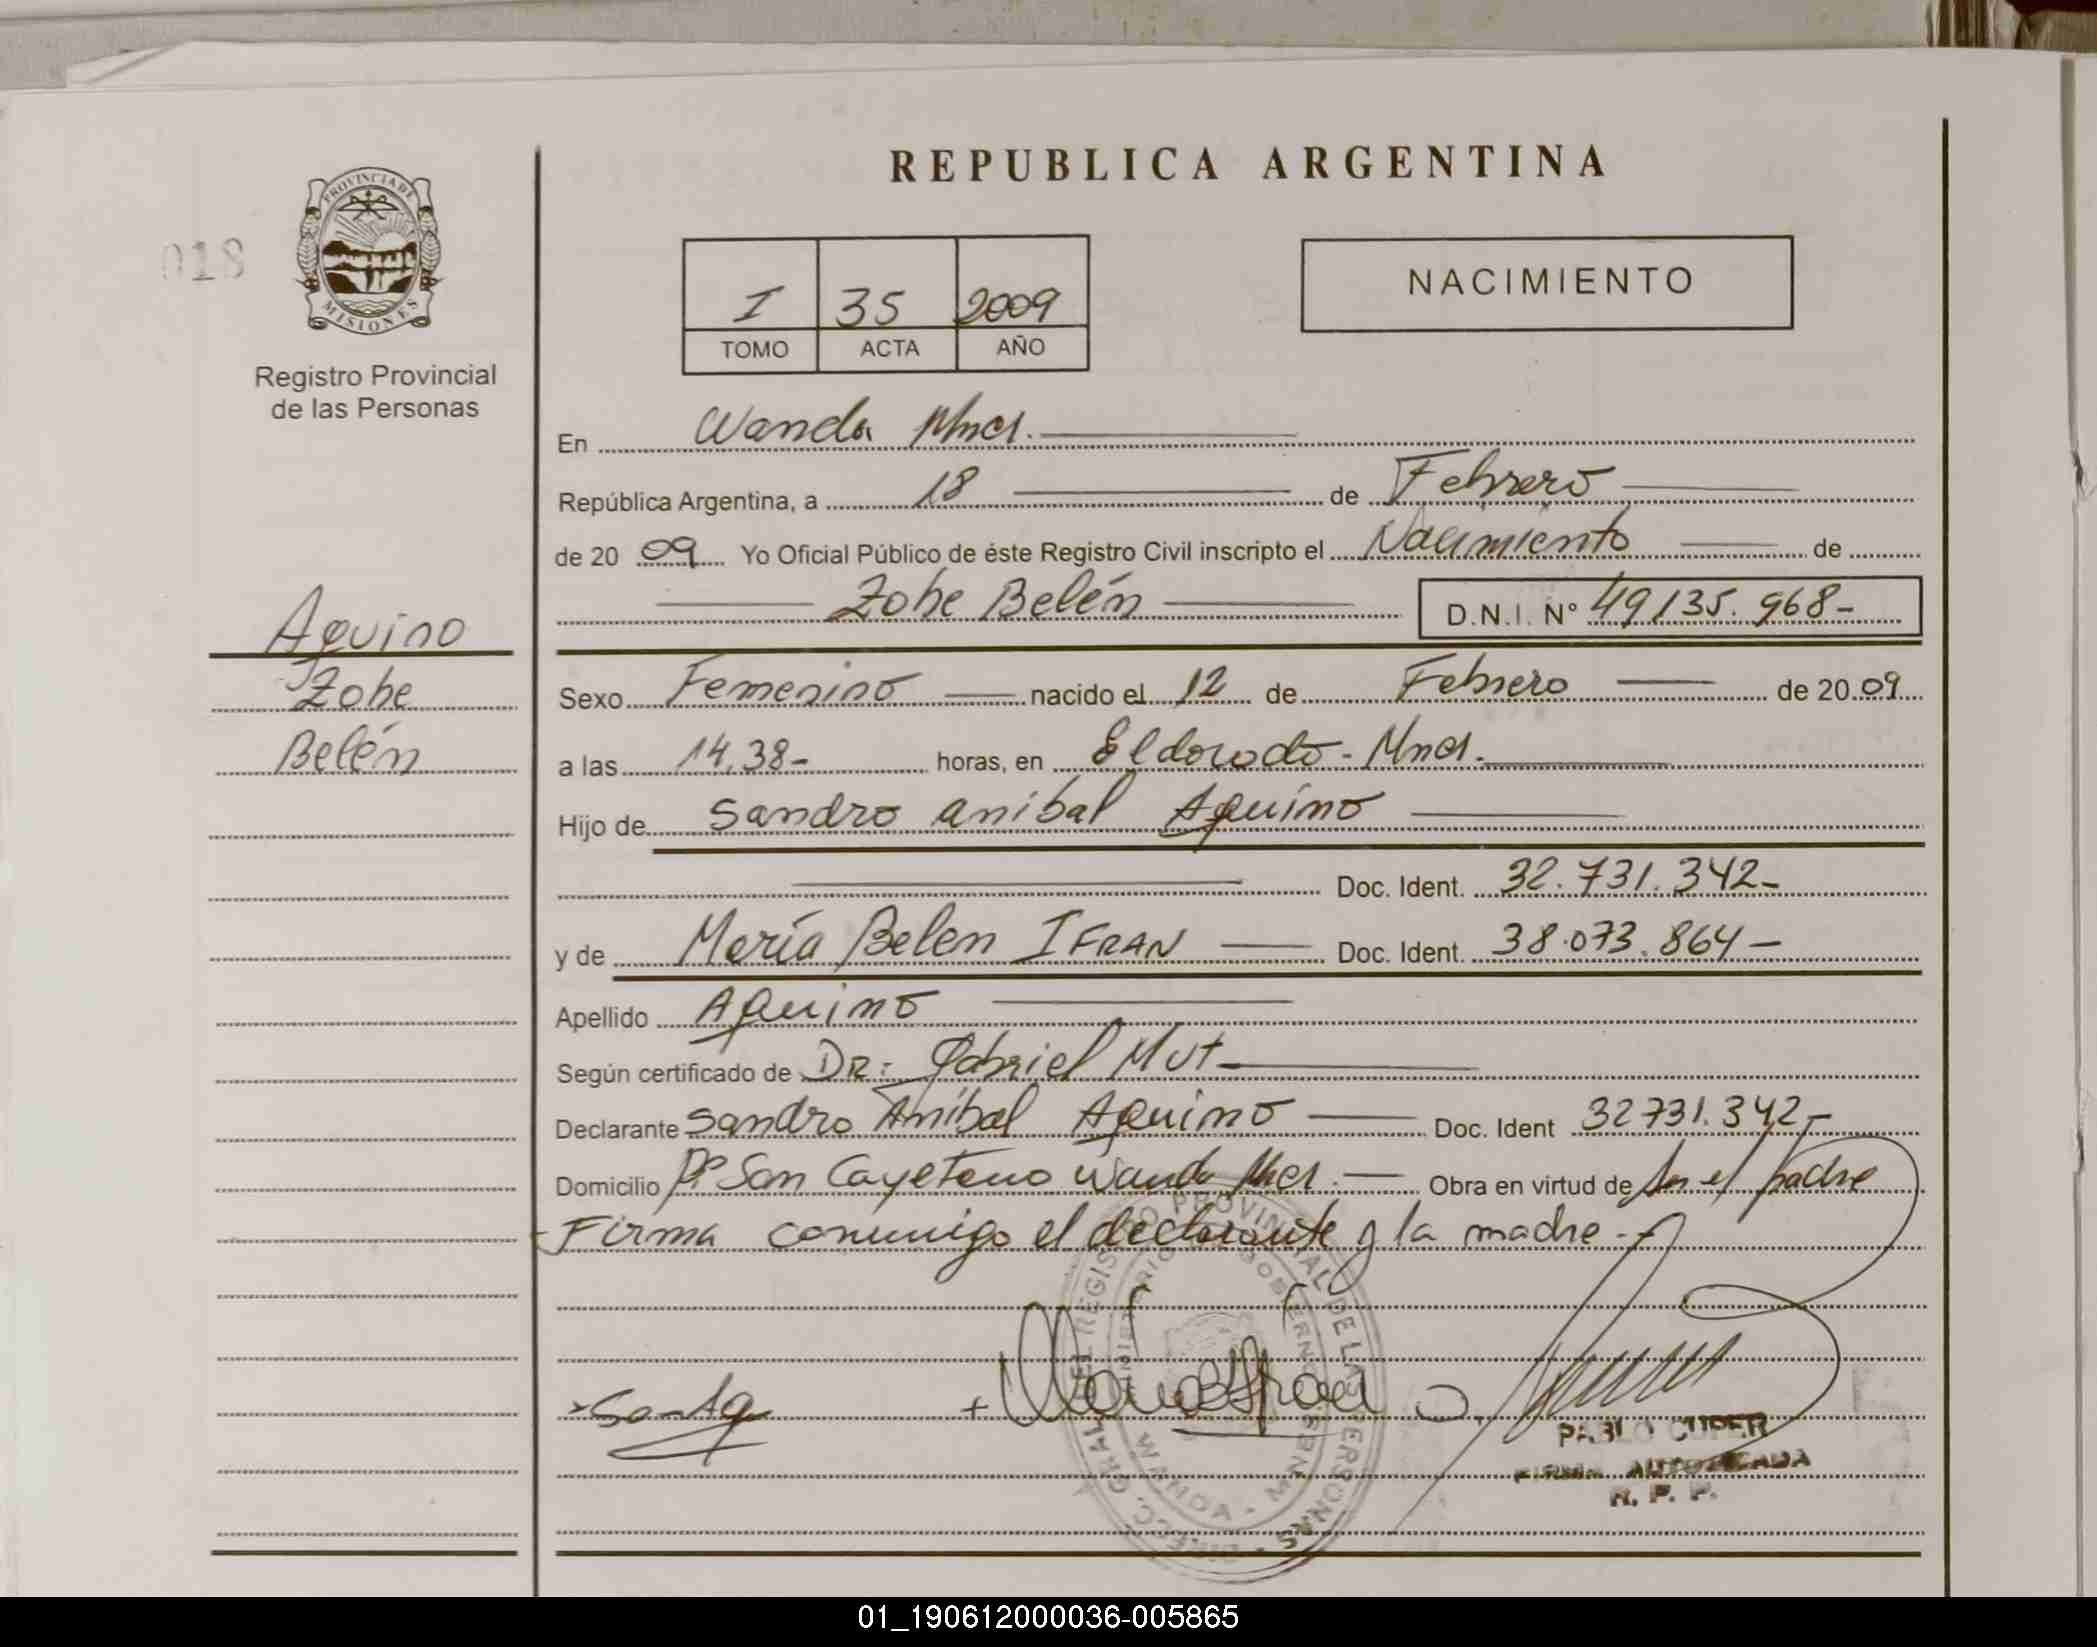 REPUBLICA ARGENTINA
018
PROVINCIA DE
MISIONES
Registro Provincial
de las Personas
I 35 2009
TOMO ACTA AÑO
NACIMIENTO
En Wanda Mnes.
República Argentina, a 18 de Febrero
de 2009 Yo Oficial Público de éste Registro Civil inscripto el Nacimiento de
Zohe Belén D.N.I. Nº 49135.968-
Aquino
Zohe
Belén
Sexo Femenino nacido el 12 de Febrero de 2009
a las 14,38- horas, en Eldorado - Mnes.
Hijo de Sandro anibal Aquino
Doc. Ident. 32.731.342-
y de María Belen IFRAN Doc. Ident. 38.073.864-
Apellido Aquino
Según certificado de DR: Gabriel Mut
Declarante Sandro Aníbal Aquino Doc. Ident 32731.342-
Domicilio Bº San Cayetano Wanda Mnes. Obra en virtud de ser el padre
Firma conmigo el declarante y la madre-
DIREC. GRAL. DEL REGISTRO PROVINCIAL DE LAS PERSONAS
MINISTERIO GOBIERNO
WANDA - MNES
PABLO CUPER
FIRMA AUTORIZADA
R. P. P.
01_190612000036-005865